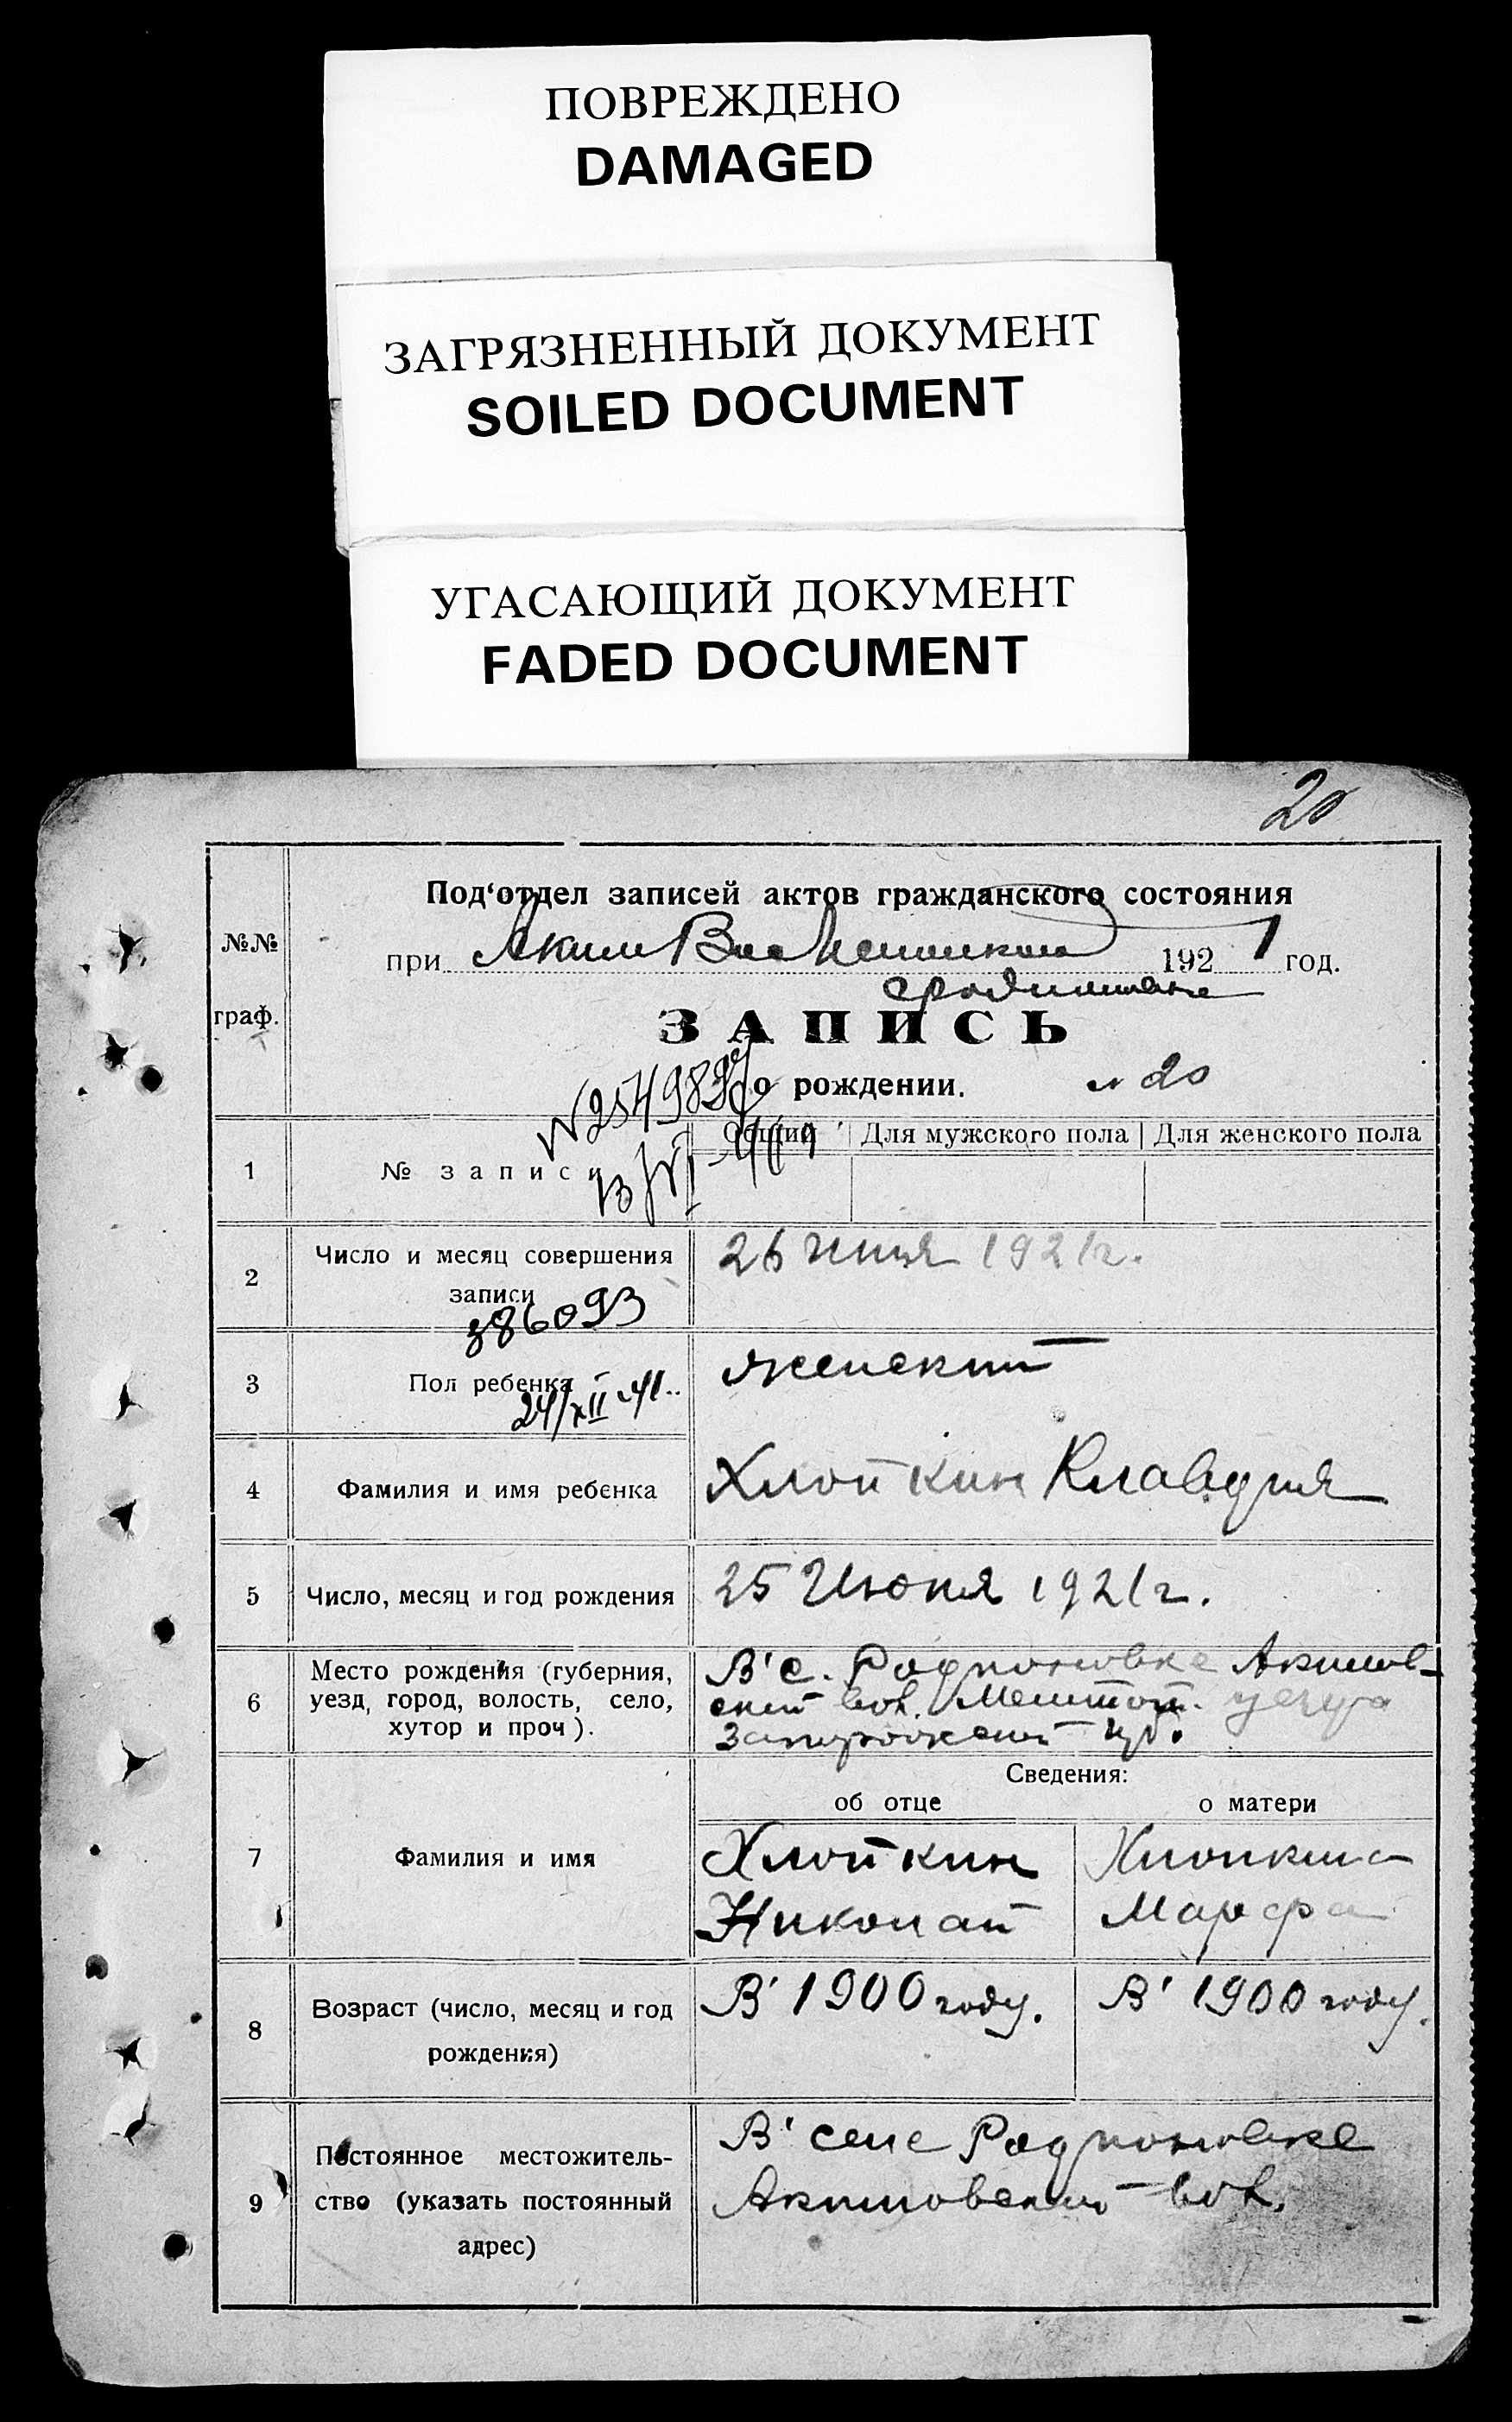 ПОВРЕЖДЕНО
DAMAGED
ЗАГРЯЗНЕННЫЙ ДОКУМЕНТ
SOILED DOCUMENT
УГАСАЮЩИЙ ДОКУМЕНТ
FADED DOCUMENT
20
Под'отдел записей актов гражданского состояния
№№
граф.
при 1921 год.
ЗАПИСЬ
о рождении. № 20
Общий Для мужского пола Для женского пола
1 № записи
2 Число и месяц совершения
записи
26 Июня 1921 г.
386093
3 Пол ребенка
женский
24/XII 41
4 Фамилия и имя ребенка
Хлопкин Клавдия
5 Число, месяц и год рождения
25 Июня 1921 г.
6 Место рождения (губерния,
уезд, город, волость, село,
хутор и проч).
В' с. Родионовке Акимов-
ской вол. уезда
Запорожской губ.
Сведения:
об отце о матери
7 Фамилия и имя
Хлопкин
Николай
Хлопкина
Марфа
8 Возраст (число, месяц и год
рождения)
В' 1900 году. В' 1900 году.
9 Постоянное местожитель-
ство (указать постоянный
адрес)
В' селе Родионовке
Акимовской вол.